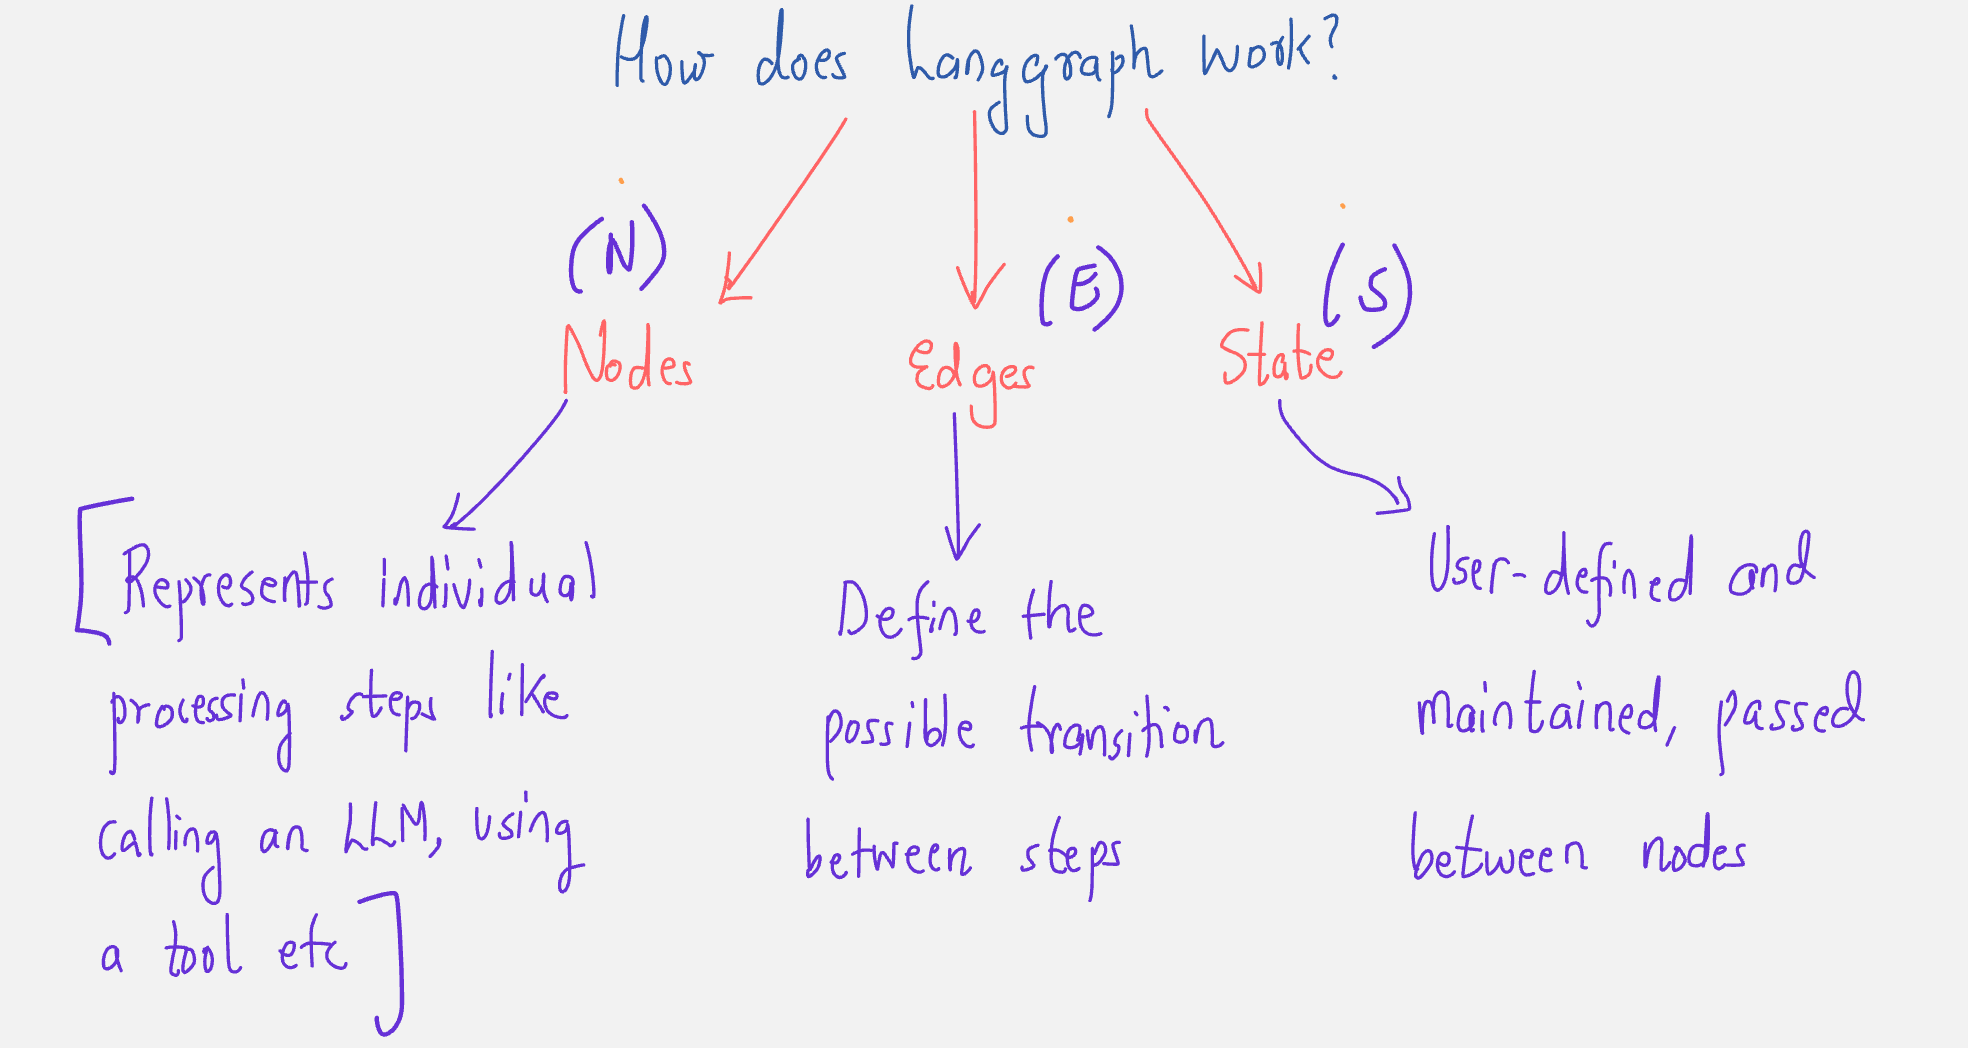 How does Langgraph work?
(N)
Nodes
(E)
Edges
(S)
State
[Represents individual
processing steps like
calling an LLM, using
a tool etc]
Define the
possible transition
between steps
User-defined and
maintained, passed
between nodes